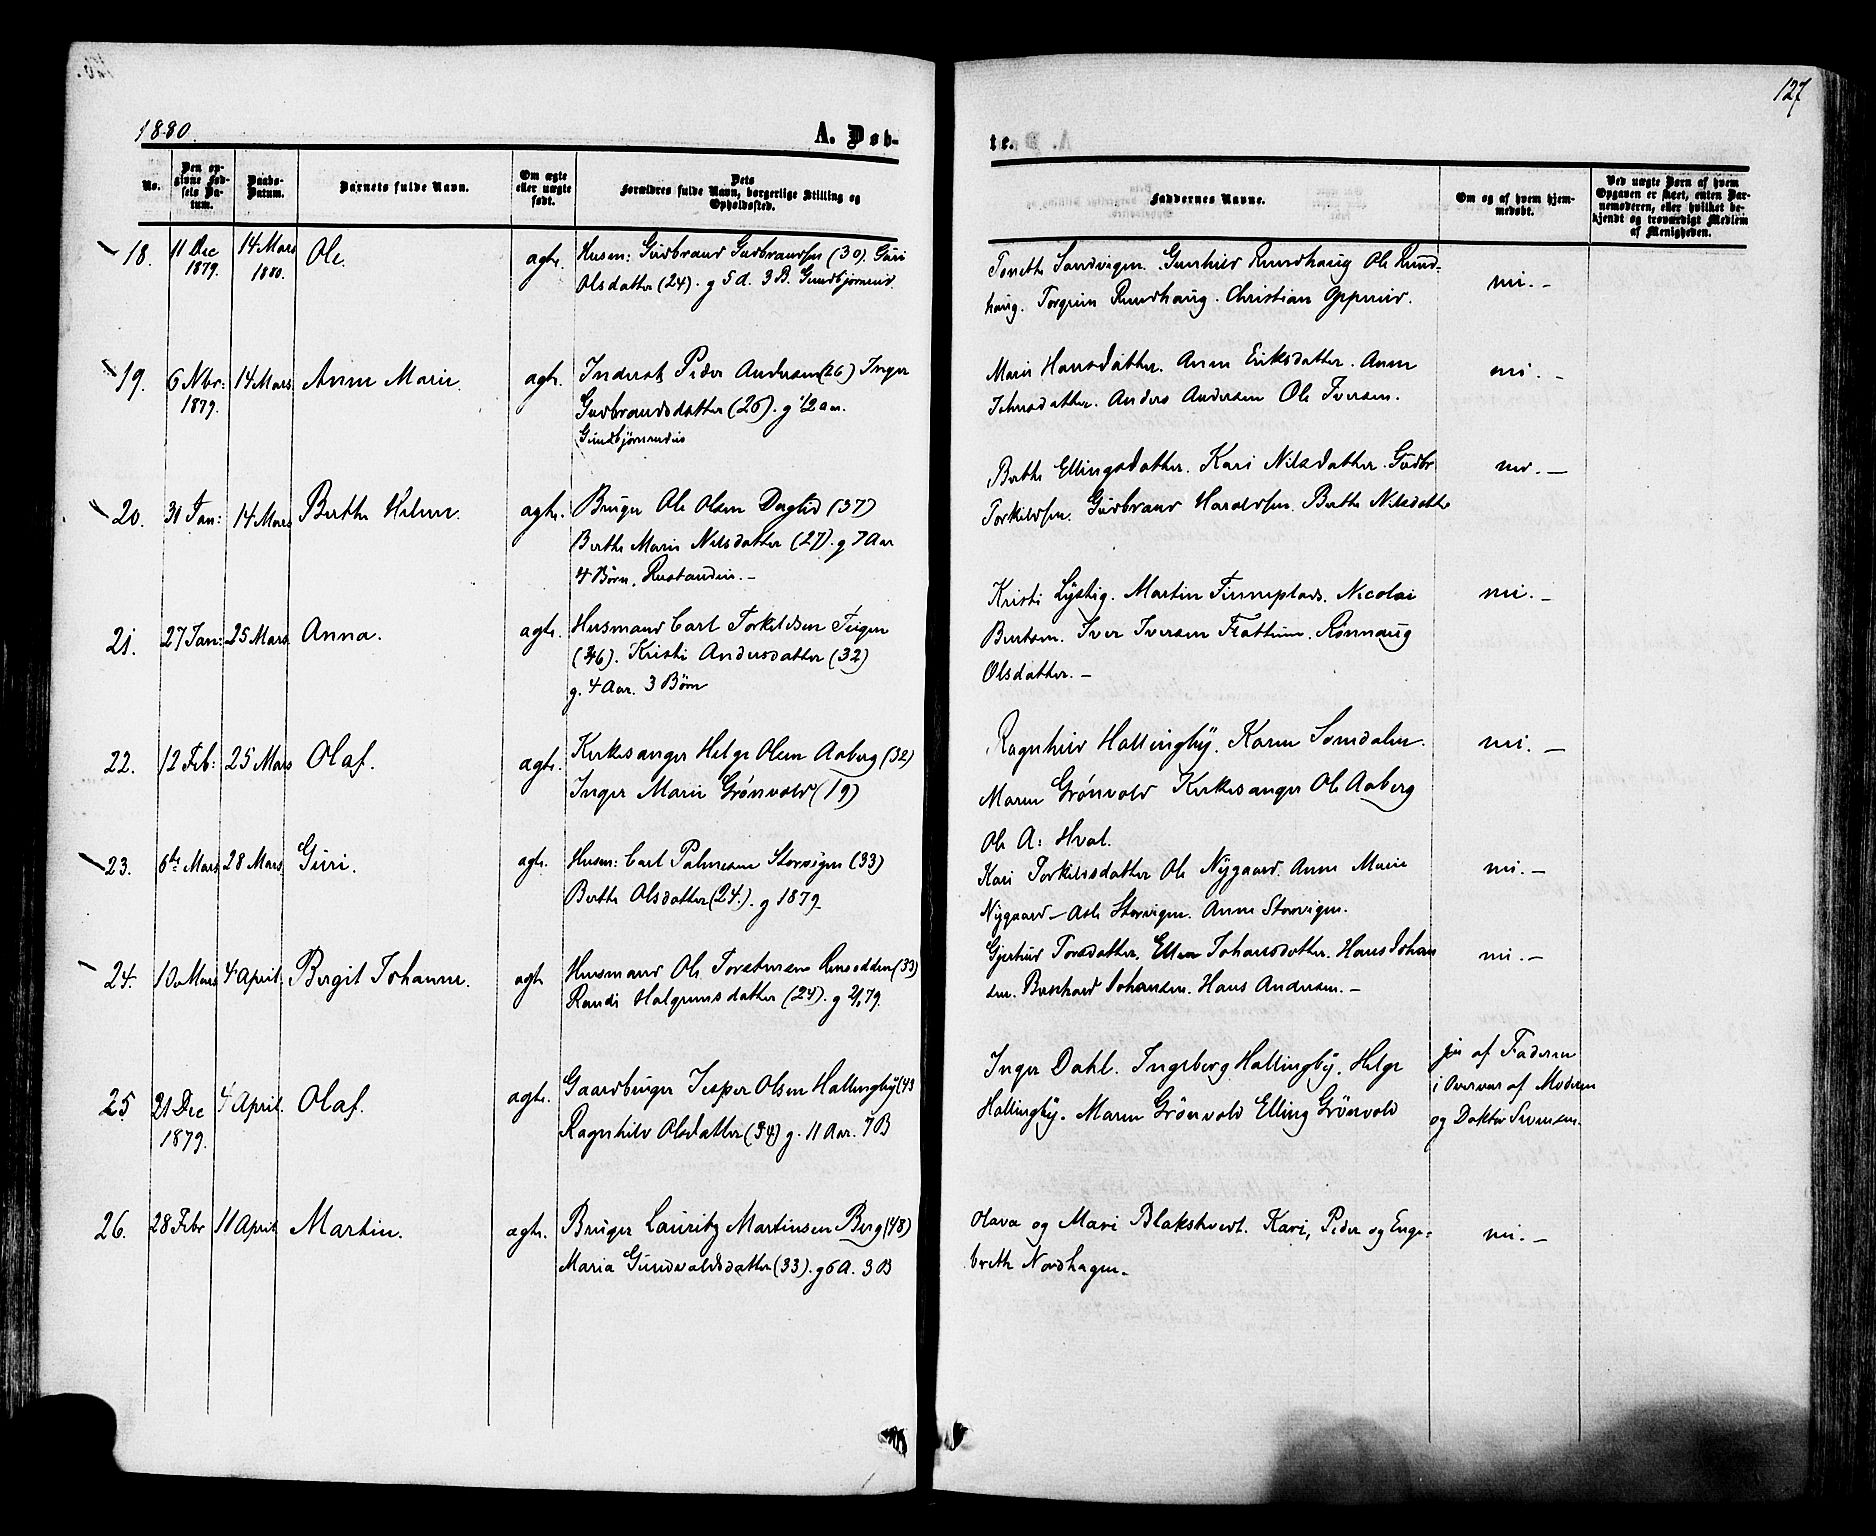 127
1880.
A. Døb-
te.
No.
Den op-
givne Fød-
sels Da-
tum.
Daabs-
Datum.
Barnets fulde Navn.
Om ægte
eller uægte
født.
Dets
Forældres fulde Navn, borgerlige Stilling og
Opholdssted.
Faddernes Navne.
Om og af hvem hjem-
medøbt.
Ved uægte Børn af hvem
Opgaven er skeet, enten Bar-
nemoderen, eller hvilket be-
kjendt og troværdigt Medlem
af Menigheden.
18. 11 Dec 1879. 14 Mars 1880. Ole. ægte.
Husm: Gudbrand Gudbrandsen (30). Guri
Olsdatter (24). g 5 A. 3 B. Gundbjørneid.
Tonette Sandvigen. Gunhild Rundhaug Ole Rund-
haug. Torgrim Rundhaug. Christian Oppeneid.
nei.-
19. 6 Nbr: 1879. 14 Mars. Anne Marie. ægte.
Inderst Peder Andersen (26) Inger
Gudbrandsdatter (26). g ½ aar.
Marie Hansdatter. Anne Eriksdatter. Anne
Johnsdatter. Anders Andersen Ole Iversen.
nei.-
20. 31 Jan: 14 Mars Berthe Helene. ægte.
Bruger Ole Olsen Døglid (37)
Berthe Marie Nilsdatter (27). g 7 Aar
4 Børn. Rustandeie.-
Berthe Ellingsdatter. Kari Nilsdatter. Gudbr
Torkildsen. Gudbrand Haraldsen. Berthe Nilsdatter
nei.-
21. 27 Jan: 25 Mars. Anna. ægte.
Husmand Carl Torkildsen Teigen
(36). Kristi Andersdatter (32)
g. 4 Aar. 3 Børn
Kristi Lystig. Martin Finneplads. Nicolai
Berntsen. Iver Iversen Flattum. Rønnaug
Olsdatter.-
nei.-
22. 12 Feb: 25 Mars Olaf. ægte.
Kirkesanger Helge Olsen Aaberg (32)
Inger Marie Grønvold (19)
Ragnhild Hallingby. Karen Somdalen.
Maren Grønvold Kirkesanger Ole Aaberg
Ole A: Hval.
nei.-
23. 6te Mars 28 Mars Guri. ægte.
Husm: Carl Palmesen Storvigen (33)
Berthe Olsdatter (24.). g 1879.
Kari Torkildsdatter Ole Nygaard. Anne Marie
Nygaard - Asle Storvigen. Anne Storvigen.
nei.-
24. 10 Mars 4 April. Bergit Johanne. ægte
Husmand Ole Torstensen Ensodden (33)
Randi Halgrimsdatter (24). g 2/1 79.
Gjertrud Torsdatter. Ellen Johansdatter. Hans Johan
sen. Bernhard Johansen. Hans Andersen.-
nei.-
25 21 Dec 1879. 4 April. Olaf. ægte.
Gaardbruger Jesper Olsen Hallingby (43
Ragnhild Olsdatter (34) g. 11 Aar. 7 B
Inger Dahl. Ingeborg Hallingby. Helge
Hallingby. Maren Grönvold Elling Grönvold
ja af Faderen
i Overvær af Moderen
og Doktor Svensen.
26. 28 Febr 11 April Martin. ægte.
Bruger Lauritz Martinsen Berg (48)
Maria Gundvaldsdatter (33). g 6 A. 3 B
Olava og Mari Blakstvedt. Kari, Peder og Enge-
breth Nordhagen.
nei.-